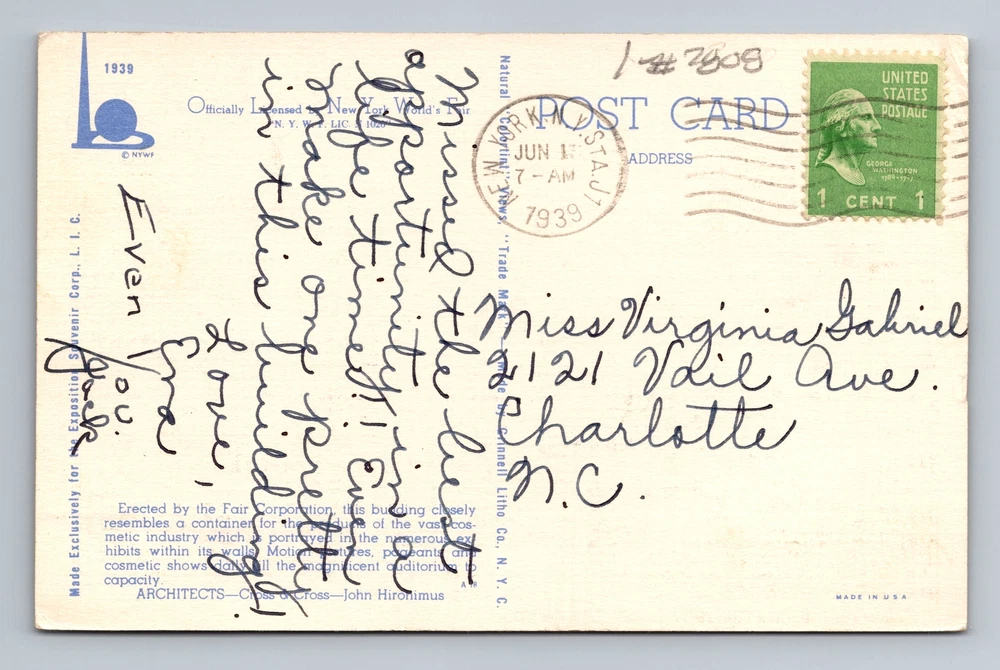 1939
© NYWF
Officially Licensed by New York World's Fair
N. Y. W. F. LIC. 1020
POST CARD
ADDRESS
NEW YORK, N.Y. STA. J 1
JUN
7 - AM
1939
UNITED
STATES
POSTAGE
GEORGE
WASHINGTON
1789-1797
1 CENT 1
1-#2808
Missed the best
opportunity in a
life time!! Even
make one pretty
in this building!
Love,
Even You.
Miss Virginia Gabriel
2121 Vail Ave.
Charlotte
N.C.
Made Exclusively for the Exposition Souvenir Corp., L. I. C.
Natural Colortint Views, "Trade Mark" made by Grinnell Litho Co., N. Y. C.
Erected by the Fair Corporation, this building closely
resembles a container for the products of the vast cos-
metic industry which is portrayed in the numerous ex-
hibits within its walls. Motion pictures, pageants and
cosmetic shows daily fill the magnificent auditorium to
capacity.
ARCHITECTS—Cross & Cross—John Hironimus
MADE IN USA